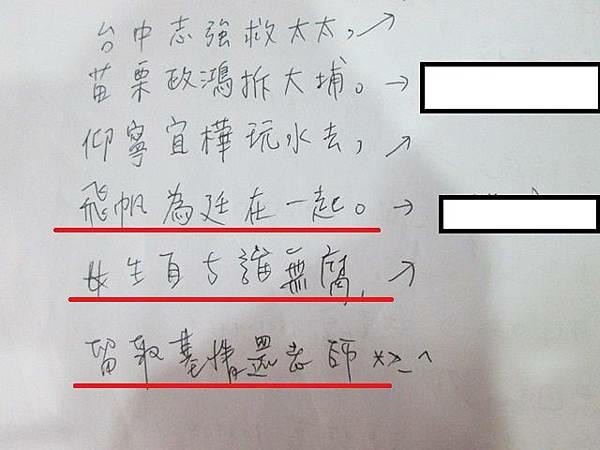 台中志強救太太，↗
苗栗政鴻拆大埔。→
仰寧宜樺玩水去，↗
飛帆為廷在一起。→
女生自古誰無腐，↗
留取基情還老師 *>_^